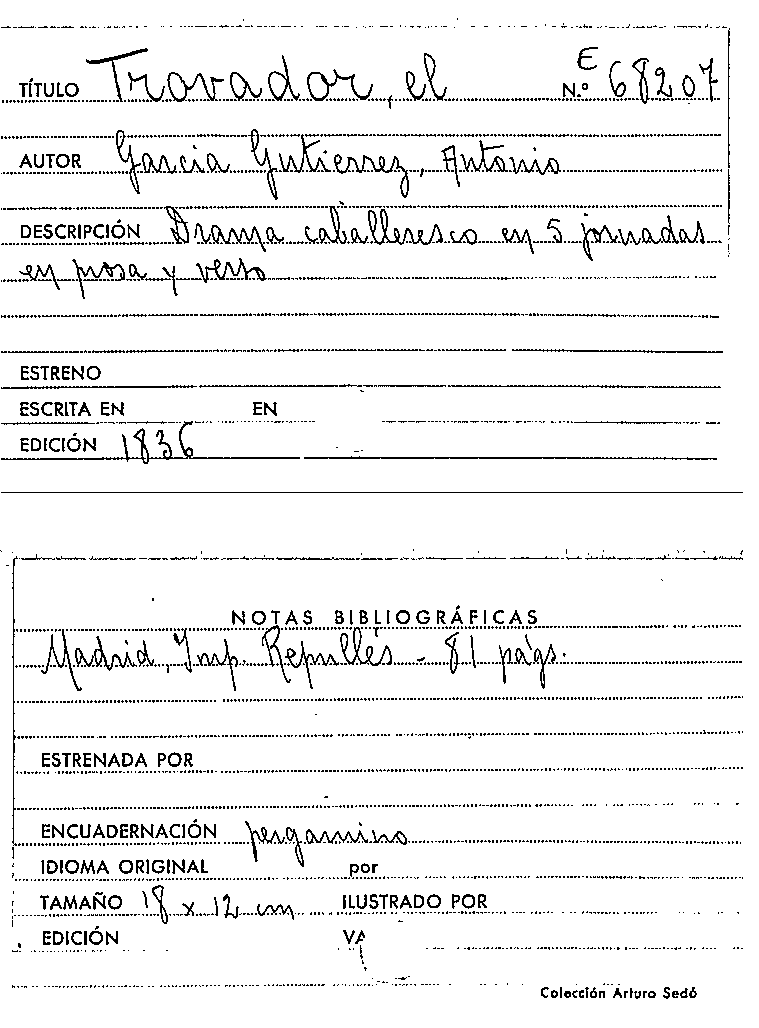 TÍTULO Trovador, el N.º E 68207
AUTOR Garcia Gutierrez, Antonio
DESCRIPCIÓN Drama caballeresco en 5 jornadas
en prosa y verso
ESTRENO
ESCRITA EN EN
EDICIÓN 1836
NOTAS BIBLIOGRÁFICAS
Madrid, Imp. Repullés - 81 págs.
ESTRENADA POR
ENCUADERNACIÓN pergamino
IDIOMA ORIGINAL por
TAMAÑO 18 x 12 cm ILUSTRADO POR
EDICIÓN VA
Colección Arturo Sedó